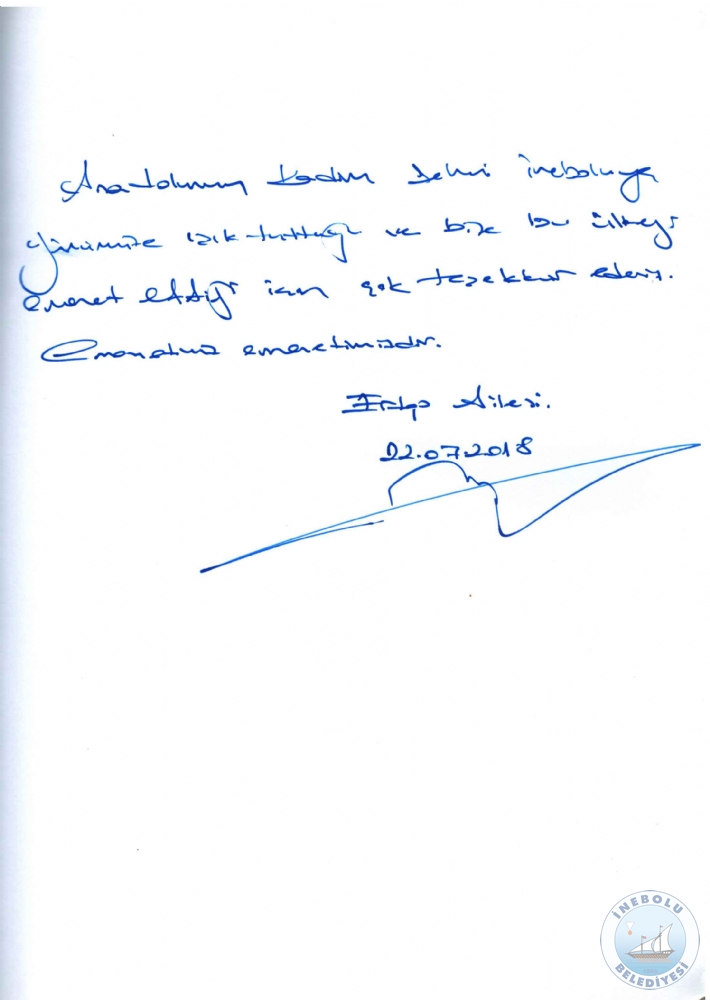 Anadolunun kadim şehri İneboluya
günümüze ışık tuttuğu ve bize bu ülkeyi
emanet ettiği için çok teşekkür ederiz.
Emanetiniz emanetimizdir.
Ailesi.
22.07.2018
İNEBOLU
BELEDİYESİ